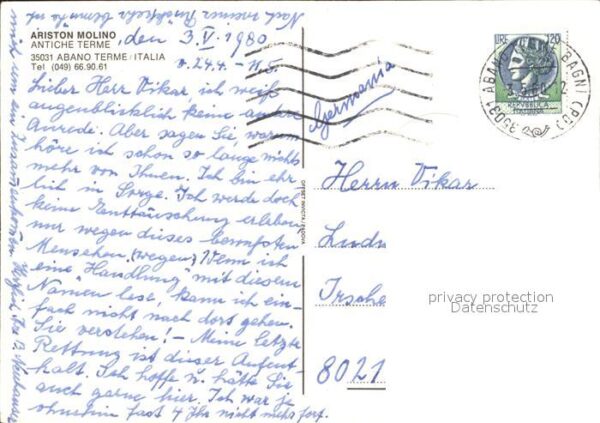 ARISTON MOLINO
ANTICHE TERME
35031 ABANO TERME/ITALIA
Tel (049) 66.90.61
den 3.V.1980
v. 24.4. -
Lieber Herr Vikar ich weiß
augenblicklich keine andere
Anrede. Aber sagen Sie, warum
höre ich schon so lange nichts
mehr von Ihnen. Ich bin ehr
lich in Sorge. Ich werde doch
keine Enttäuschung erleben
nur wegen dieses bewußten
Menschen, (wegen) Wenn ich
eine "Handlung" mit diesem
Namen lese, kann ich ein-
fach nicht nach dort gehen.
Sie verstehen! - Meine letzte
Rettung ist dieser Aufent-
halt. Ich hoffe u. hätte Sie
auch gerne hier. Ich war ja
ohnehin fast 4 Jhr nicht mehr fort.
Nach meiner Rückkehr
Germania
LIRE 120
REPVBBLICA
ITALIANA
35031 ABANO BAGNI (PD)
3.5.80
Herrn Vikar
Ludw
Irsche
8021
privacy protection
Datenschutz